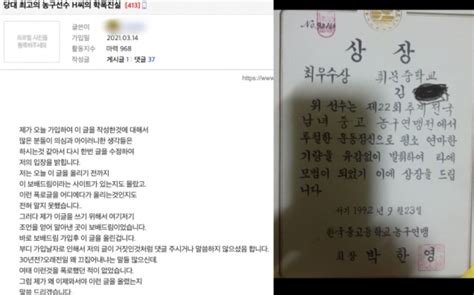 당대 최고의 농구선수 H씨의 학폭진실 [413]
글쓴이
가입일 2021.03.14
활동지수 마력 968
작성글 게시글 1 댓글 37
프로필 사진을
등록해주세요
https://www
제가 오늘 가입하여 이 글을 작성한것에 대해서
많은 분들이 의심과 아이러니한 생각들은
하시는것 같아서 다시 한번 글을 수정하여
저의 입장을 밝힙니다.
저는 오늘 이 글을 올리기 전까지
이 보배드림이라는 사이트가 있는지도 몰랐고.
이런 폭로글을 어디에다가 올리는것인지도
전혀 알지 못했습니다.
그러다 제가 이 글을 쓰기 위해서 여기저기
조언을 얻어 알아낸 곳이 보배드림이었습니다.
바로 보배드림 가입후 이 글을 올린겁니다.
부디 가입날자로 인해서 저의 글이 거짓인것처럼 댓글 주시거나 말씀하지 않으셨음 합니다.
30년전?오래전일 왜 끄집어내냐는 말들 많으신데.
여태 이런것을 폭로했던 적이 없었습니다.
그리고 제가 왜 이제와서야 이런 글을 올렸는지
말씀 드리겠습니다.
상장
최우수상 휘문중학교
김
위 선수는 제22회 추계 전국
남녀 중고 농구연맹전에서
투철한 운동정신으로 평소 연마한
기량을 유감없이 발휘하여 타에
모범이 되었기 이에 상장을 드립
니다
서기 1992년 9월 23일
한국중고등학교농구연맹
회장 박한영